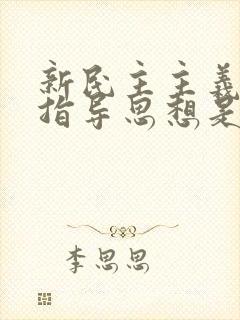 新民主主義
指导思想是
李思思